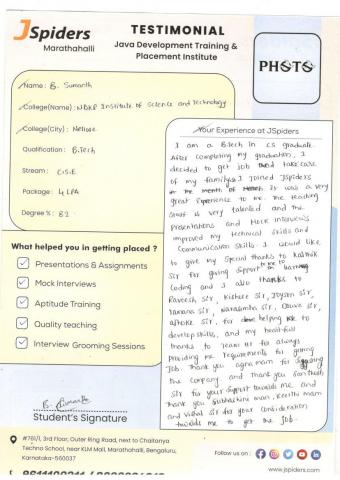 JSpiders
Marathahalli
TESTIMONIAL
Java Development Training &
Placement Institute
PHOTO
Name: B. Sumanth
College(Name): NBKR Institute of Science and Technology
College(City): Nellore
Qualification: B.Tech
Stream: C.S.E
Package: 4 LPA
Degree %: 82
What helped you in getting placed ?
Presentations & Assignments
Mock Interviews
Aptitude Training
Quality teaching
Interview Grooming Sessions
B. Sumanth
Student's Signature
Your Experience at JSpiders
I am a BTech in CS graduate.
After completing my graduation, I
decided to get job and take care
of my family. I joined JSpiders
It was a very
great experience to me. The teaching
staff is very talented and the
Presentations and Mock interviews
improved my technical skills and
Communication skills. I would like
to give my special thanks to
Sir for giving support to me in learning
Coding and I also thanks to
Raveesh Sir, Kishore Sir, Jayson Sir,
Ramana Sir, Narasimha Sir, Sir,
Ashoke Sir, for helping me to
develop skills, and my heart-full
thanks to Team for always
Providing me requirements for getting
Job. Thank you again mam for
the company and Thank you Santhosh
Sir for your support towards me and
Thank you mam, Keerthi mam
and Vishal Sir for your consideration
towards me to get the Job.
#761/1, 3rd Floor, Outer Ring Road, next to Chaitanya
Techno School, near KLM Mall, Marathahalli, Bengaluru,
Karnataka-560037
Follow us on :
www.jspiders.com